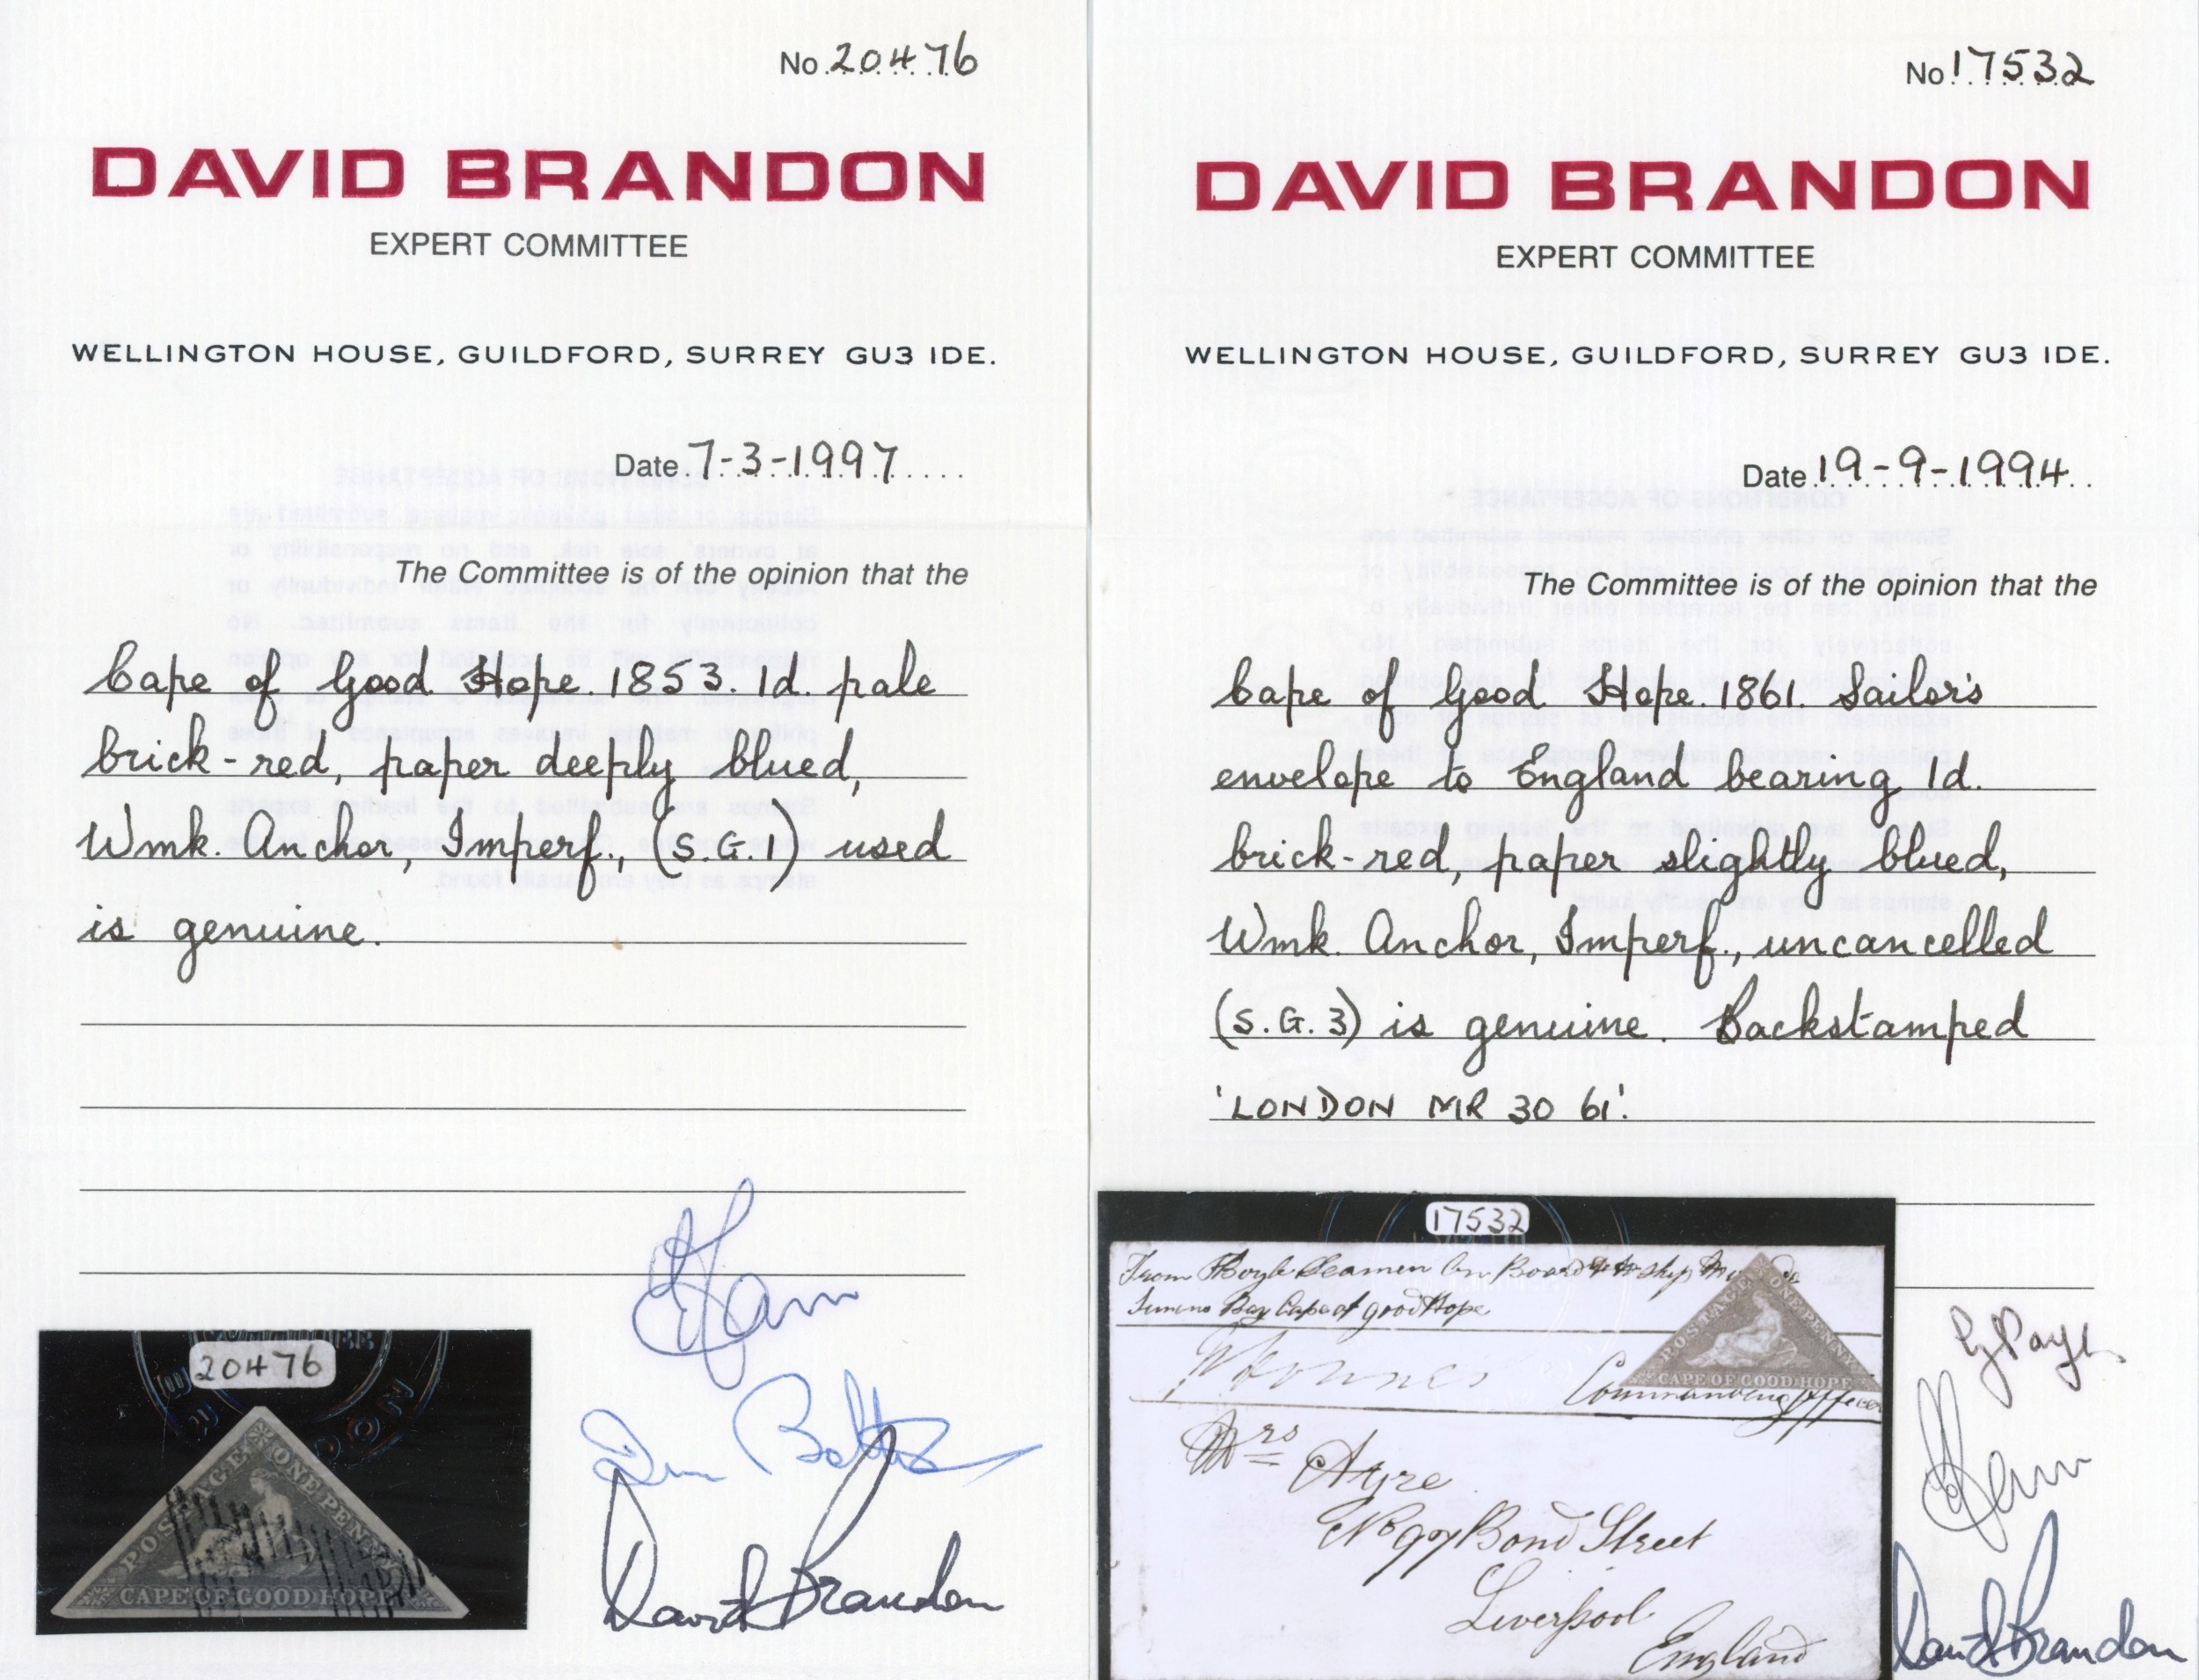 No. 20476
DAVID BRANDON
EXPERT COMMITTEE
WELLINGTON HOUSE, GUILDFORD, SURREY GU3 IDE.
Date 7-3-1997
The Committee is of the opinion that the
Cape of Good Hope. 1853. 1d. pale
brick-red, paper deeply blued,
Wmk. Anchor, Imperf., (S.G.1) used
is genuine.
20476
POSTAGE ONE PENNY
CAPE OF GOOD HOPE
David Brandon
No 17532
DAVID BRANDON
EXPERT COMMITTEE
WELLINGTON HOUSE, GUILDFORD, SURREY GU3 IDE.
Date 19-9-1994
The Committee is of the opinion that the
Cape of Good Hope. 1861. Sailor's
envelope to England bearing 1d.
brick-red, paper slightly blued,
Wmk. Anchor, Imperf., uncancelled
(S.G.3) is genuine. Backstamped
'LONDON MR 30 61'.
17532
From Boyle Seamen On Board Ship
Bay Cape of good Hope
POSTAGE ONE PENNY
CAPE OF GOOD HOPE
Commanding Officer
Mrs Ayre
No 97 Bond Street
Liverpool
England
David Brandon